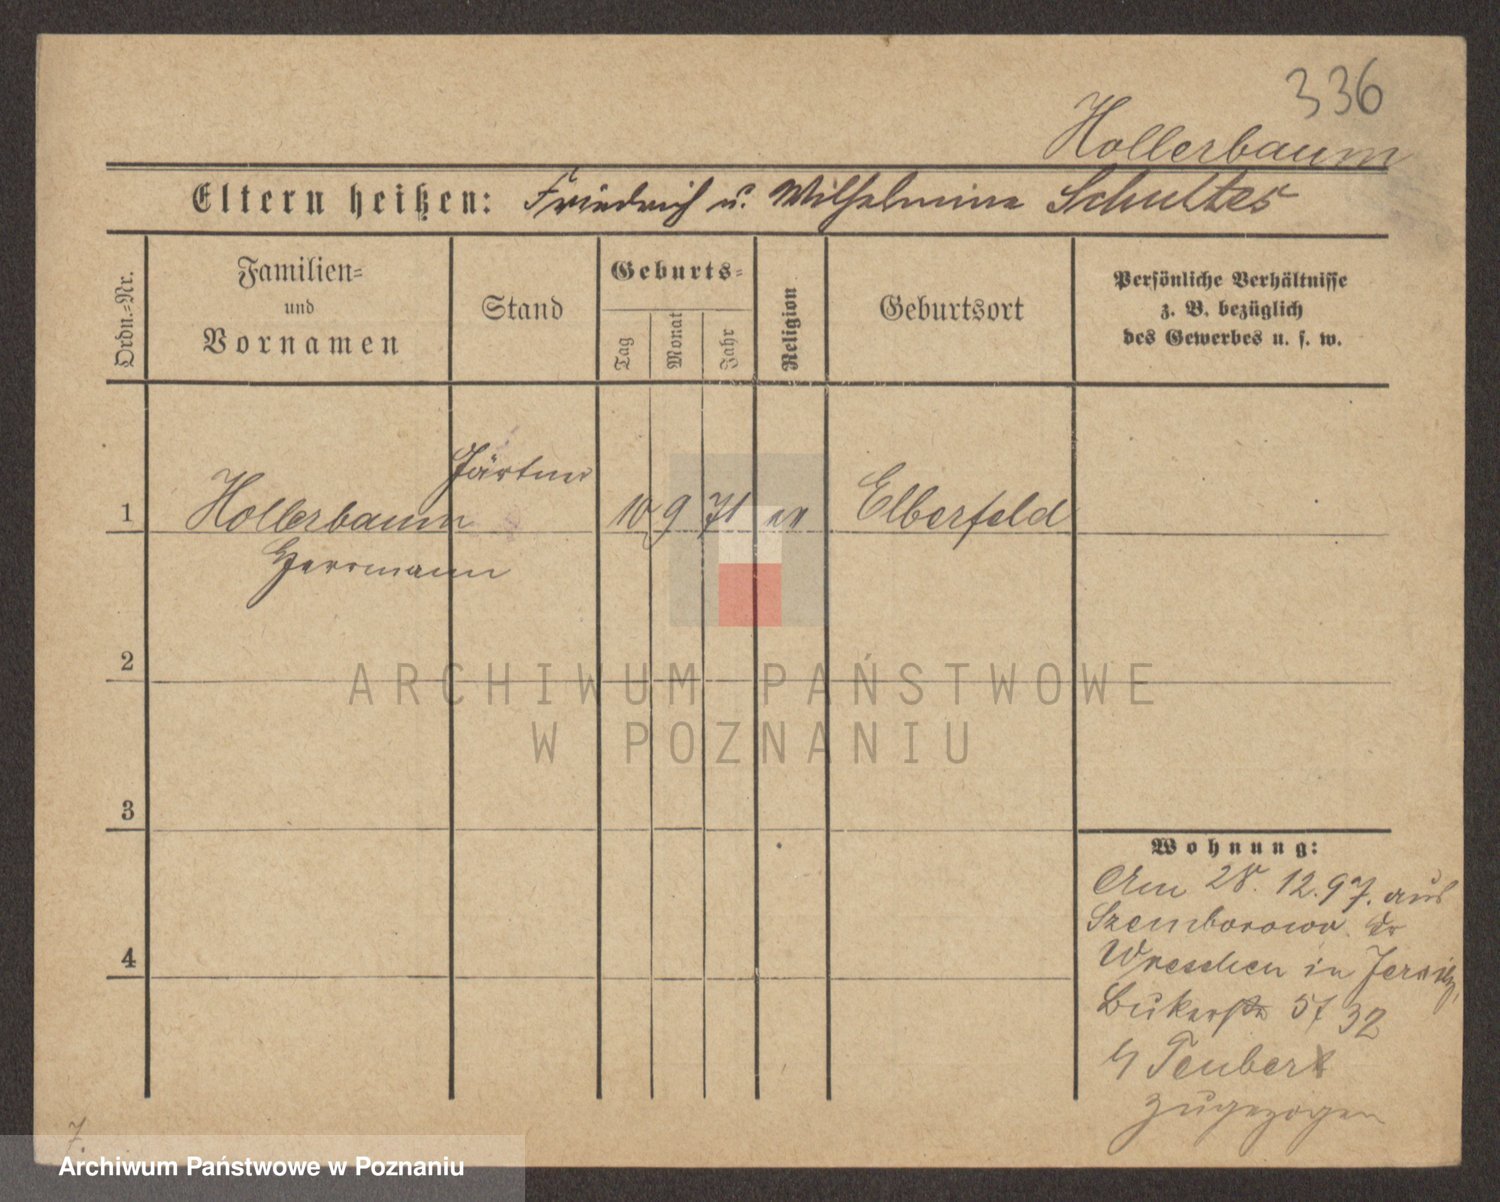 336
Hollerbaum
Eltern heißen: Friedrich u. Wilhelmine Schultes
Ordn.=Nr.
Familien=
und
Vornamen
Stand
Geburts=
Tag
Monat
Jahr
Religion
Geburtsort
Persönliche Verhältnisse
z. B. bezüglich
des Gewerbes u. s. w.
Gärtner
1 Hollerbaum 10 9 71 ev Elberfeld
Herrmann
2
ARCHIWUM PAŃSTWOWE
W POZNANIU
3
4
Wohnung:
Am 28. 12. 97. aus
Szemborowo Kr
Wreschen in Jersitz,
Bukerstr 32
b/ Teubert
zugezogen
7.
Archiwum Państwowe w Poznaniu